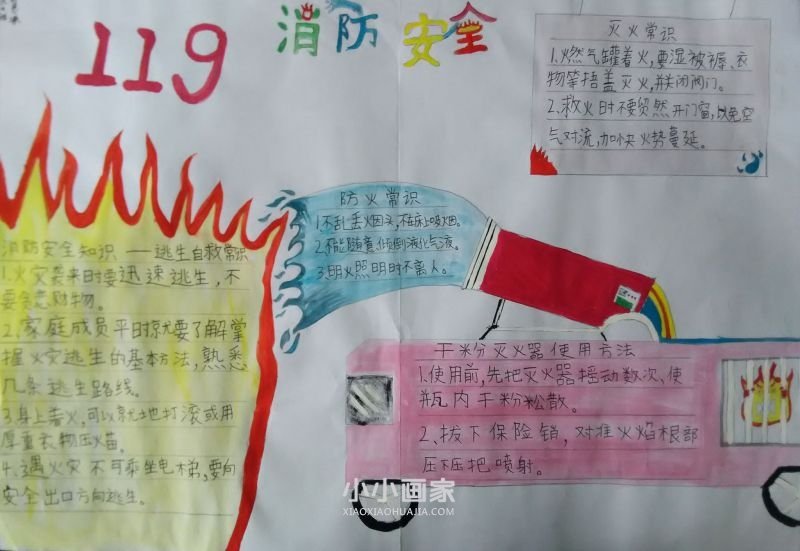 119 消防安全
灭火常识
1.燃气罐着火,要湿被褥、衣
物等捂盖灭火,并关闭阀门。
2.救火时不要贸然开门窗,以免空
气对流,加快火势蔓延。
防火常识
1.不乱丢烟头,不在床上吸烟。
2.不能随意倾倒液化气液。
3.明火照明时不离人。
消防安全知识——逃生自救常识
1.火灾袭来时要迅速逃生,不
要贪恋财物。
2.家庭成员平时就要了解掌
握火灾逃生的基本方法,熟悉
几条逃生路线。
3.身上着火,可以就地打滚或用
厚重衣物压火苗。
4.遇火灾不可乘坐电梯,要向
安全出口方向逃生。
干粉灭火器使用方法
1.使用前,先把灭火器摇动数次,使
瓶内干粉松散。
2.拔下保险销,对准火焰根部
压下压把喷射。
小小画家
XIAOXIAOHUAJIA.COM